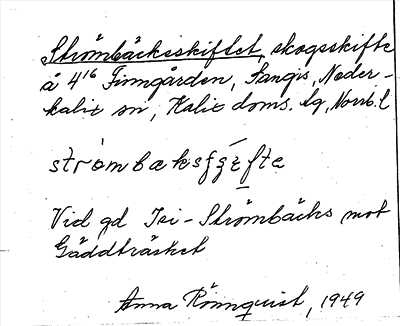 Strömbäcksskiftet, skogsskifte
å 4¹⁶ Finngården, Sangis, Neder-
kalix sn, Kalix doms. lq, Norrb. l
Vid gd Isi-Strömbäcks mot
Gäddträsket
Anna Rönnquist, 1949